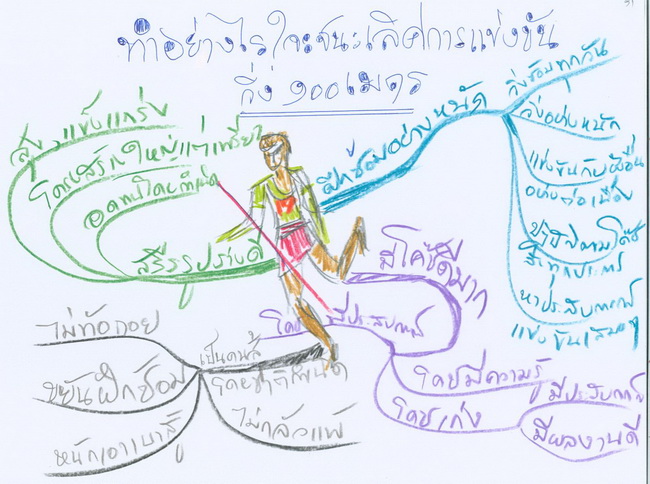 ทำอย่างไรใจะชนะเลิศการแข่งขัน
วิ่ง ๑๐๐ เมตร
สรีรรูปร่างดี
สูง แข็งแกร่ง
โครงสร้างใหญ่แต่เพรียว
อดทนโดยกำเนิด
ฝึกซ้อมอย่างหนัก
วิ่งซ้อมทุกวัน
วิ่งอย่างหนัก
แข่งขันกับผู้อื่น
อย่างต่อเนื่อง
ปฏิบัติตามโค้ช
ทุกประการ
หาประสบการณ์
แข่งขันเสมอๆ
มีโค้ชดีมาก
โค้ชมีประสบการณ์
โค้ชมีความรู้
โค้ชเก่ง
มีประสบการณ์
มีผลงานดี
เป็นคนสู้
โดยชาติกำเนิด
ไม่ท้อถอย
ขยันฝึกซ้อม
หนักเอาเบาสู้
ไม่กลัวแพ้
31